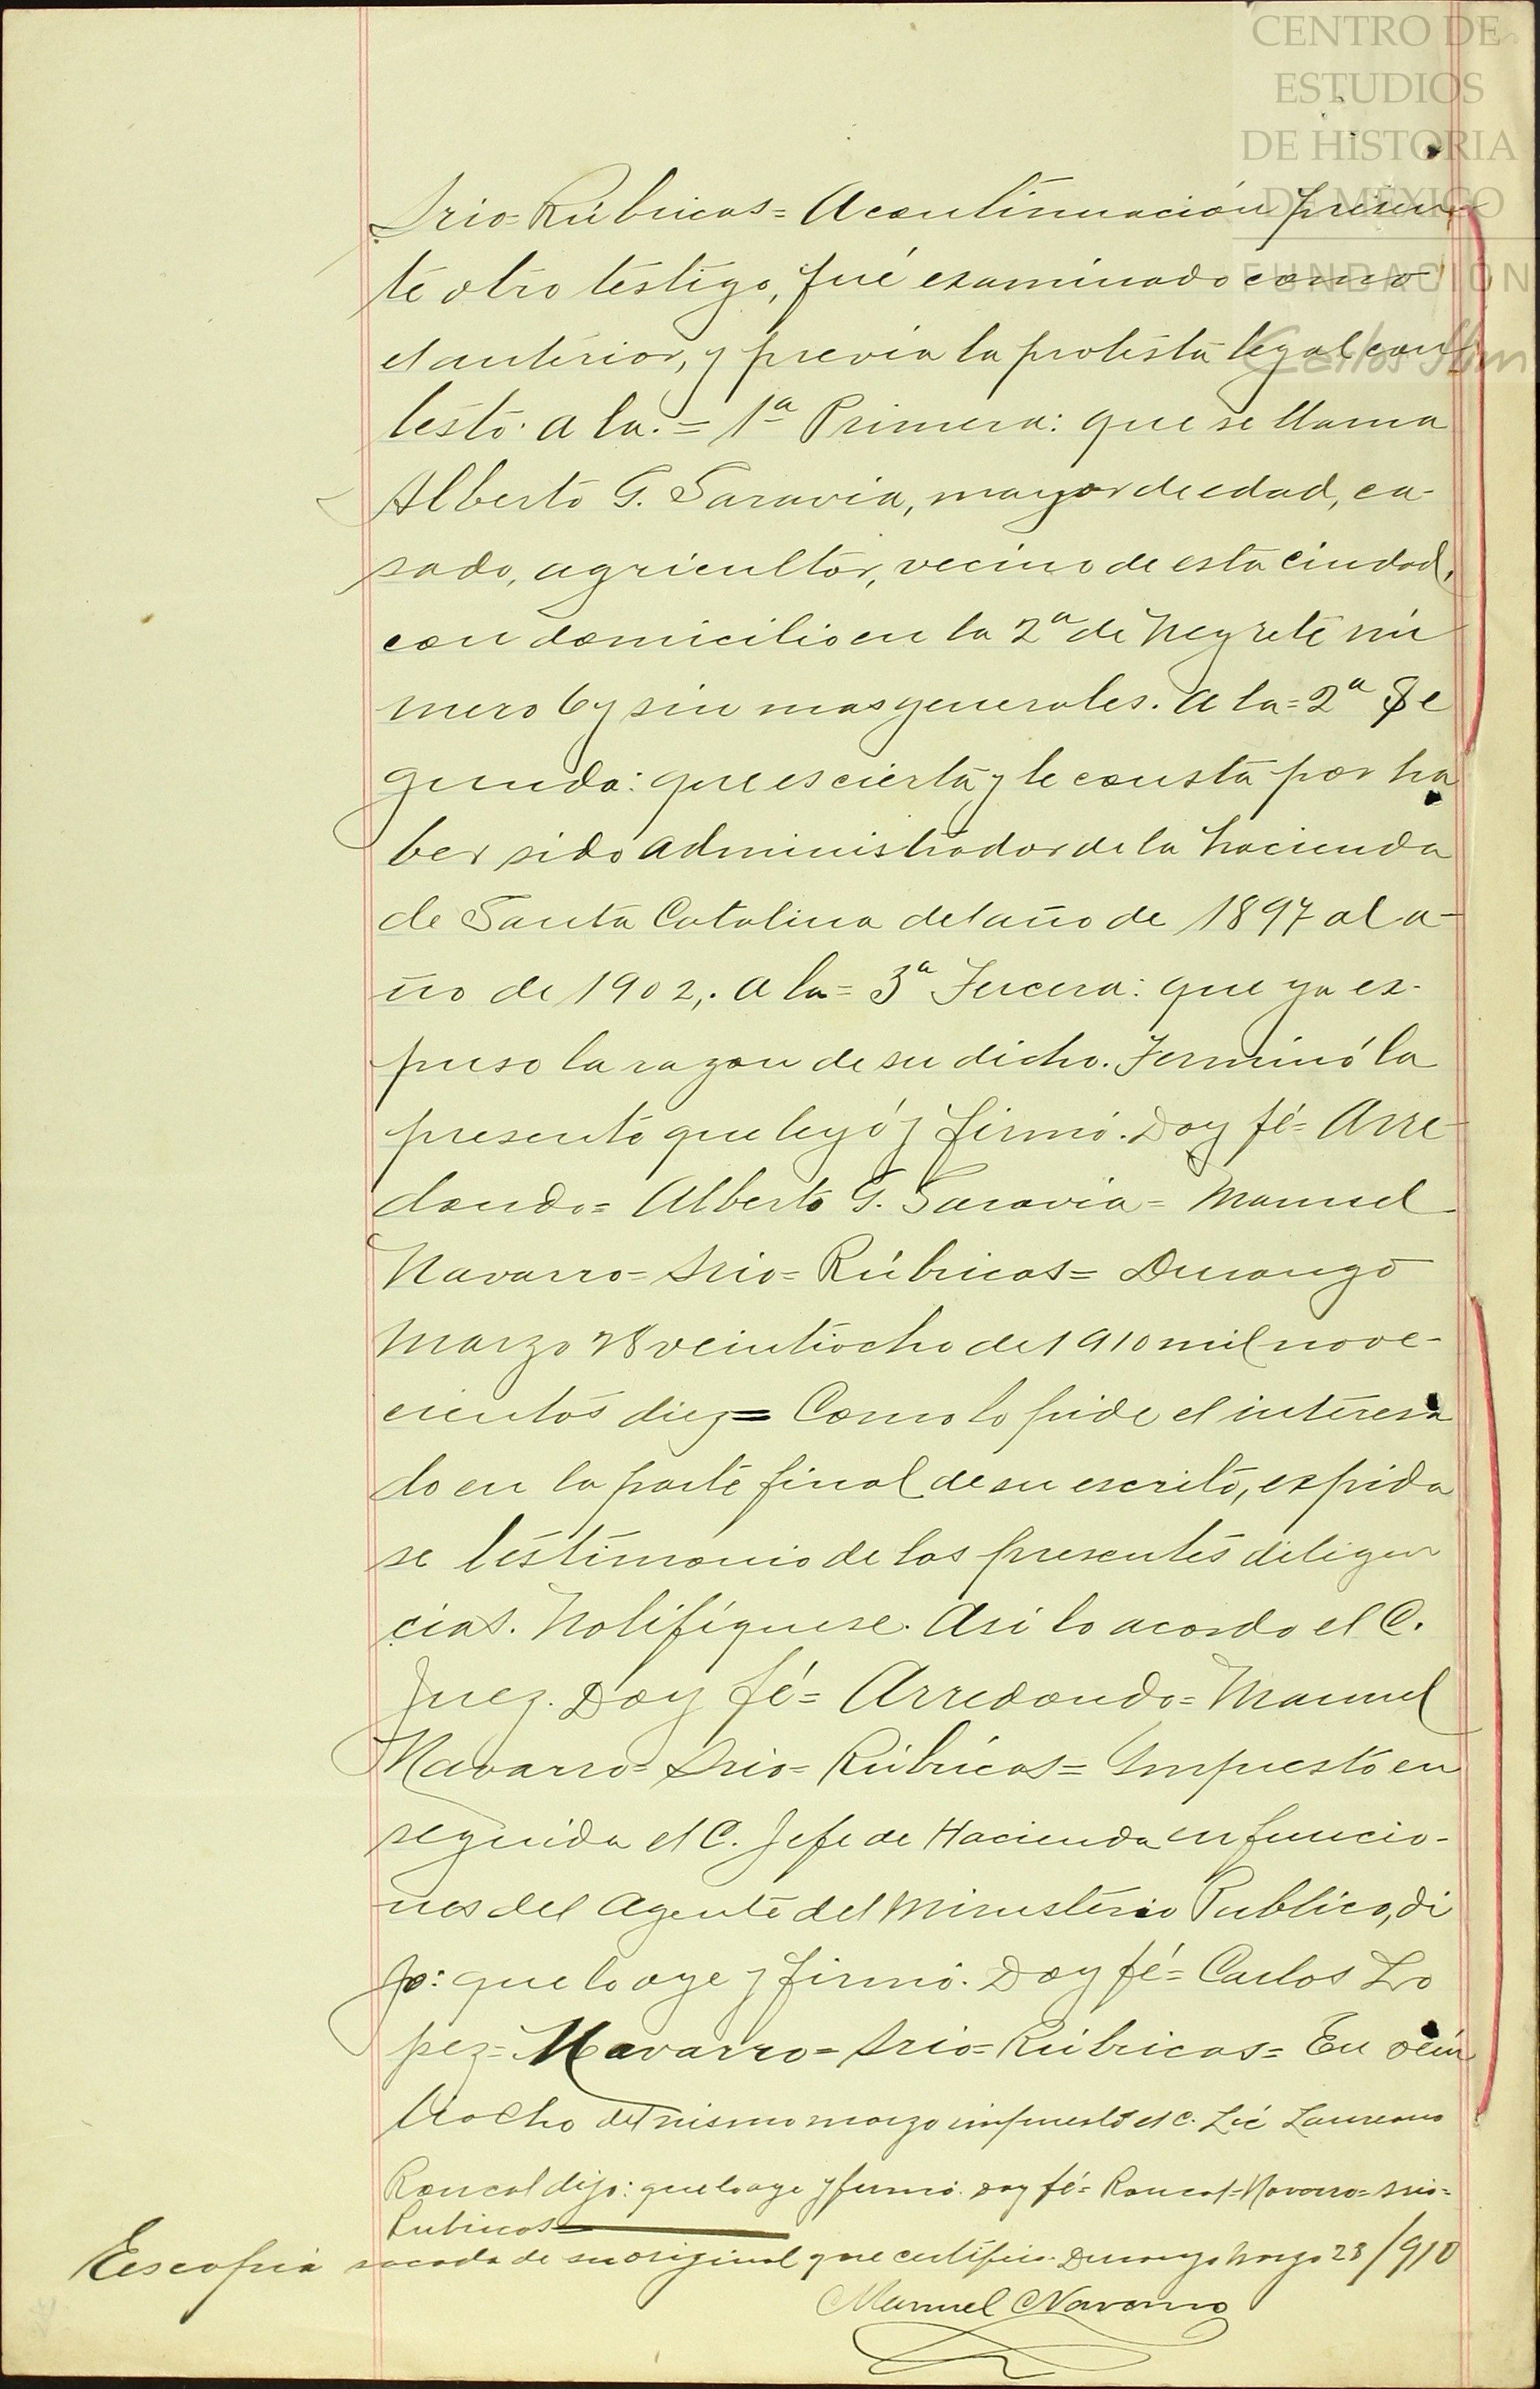 CENTRO DE
ESTUDIOS
DE HISTORIA
DE MÉXICO
FUNDACIÓN
Carlos Slim
Srio=Rúbricas= Acontinuación presen
te otro testigo, fué examinado como
el anterior, y previa la protesta legal con
testó. a la.= 1ª Primera: que se llama
Alberto G. Saravia, mayor de edad, ca-
sado, agricultor, vecino de esta Ciudad,
con domicilio en la 2ª de Negrete nú
mero 6 y sin mas generales. a la= 2ª Se
gunda: que es cierta y le consta por ha
ber sido administrador de la hacienda
de Santa Catalina del año de 1897 al a-
ño de 1902,. a la= 3ª Tercera: que ya ex-
puso la razon de su dicho. Terminó la
presente que leyó y firmó. Doy fé= Arre-
dondo= Alberto G. Saravia= Manuel
Navarro= Srio= Rúbricas= Durango
Marzo 28 veintiocho de 1910 mil nove-
cientos diez= Como lo pide el interesa
do en la parte final de su escrito, expida
se testimonio de las presentes diligen
cias. Notifíquese. Asi lo acordo el C.
Juez. Doy fé= Arredondo= Manuel
Navarro= Srio= Rúbricas= Impuesto en
seguida el C. Jefe de Hacienda en funcio-
nes del Agente del Ministerio Publico, di
jo: que lo oye y firmó. Doy fé= Carlos Lo
pez= Navarro= Srio= Rúbricas= En vein
tiocho del mismo marzo impuesto el C. Lic Laureano
Roncal dijo: que lo oye y firmó. Doy fé= Roncal=Navarro= Srio=
Rubricas=
Es copia sacada de su original que certifico. Durango Marzo 28/910
Manuel Navarro